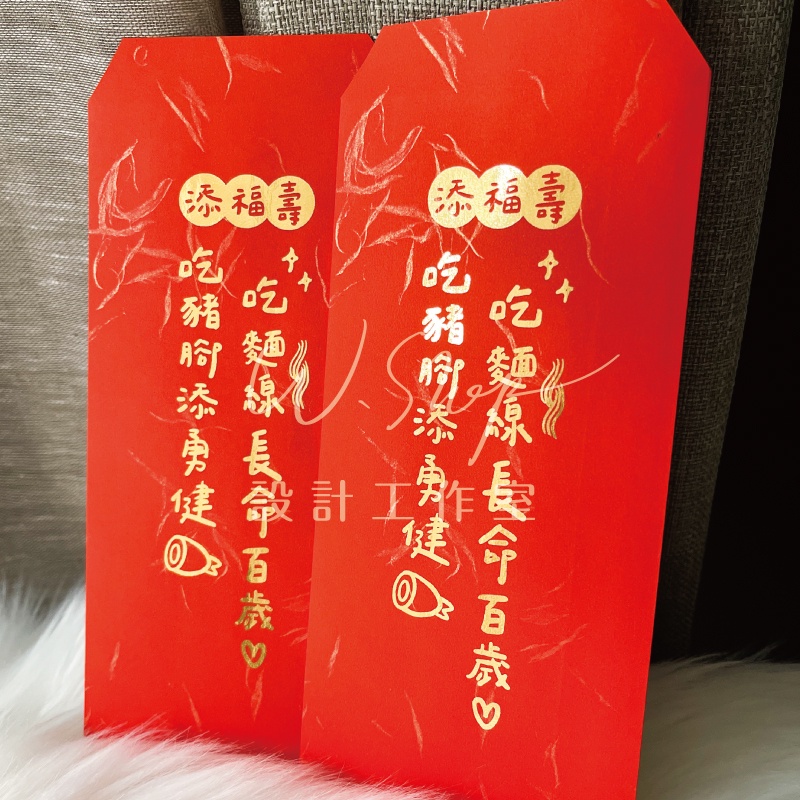 添福壽
吃麵線長命百歲
吃豬腳添勇健
添福壽
吃麵線長命百歲
吃豬腳添勇健
W.Shop
設計工作室